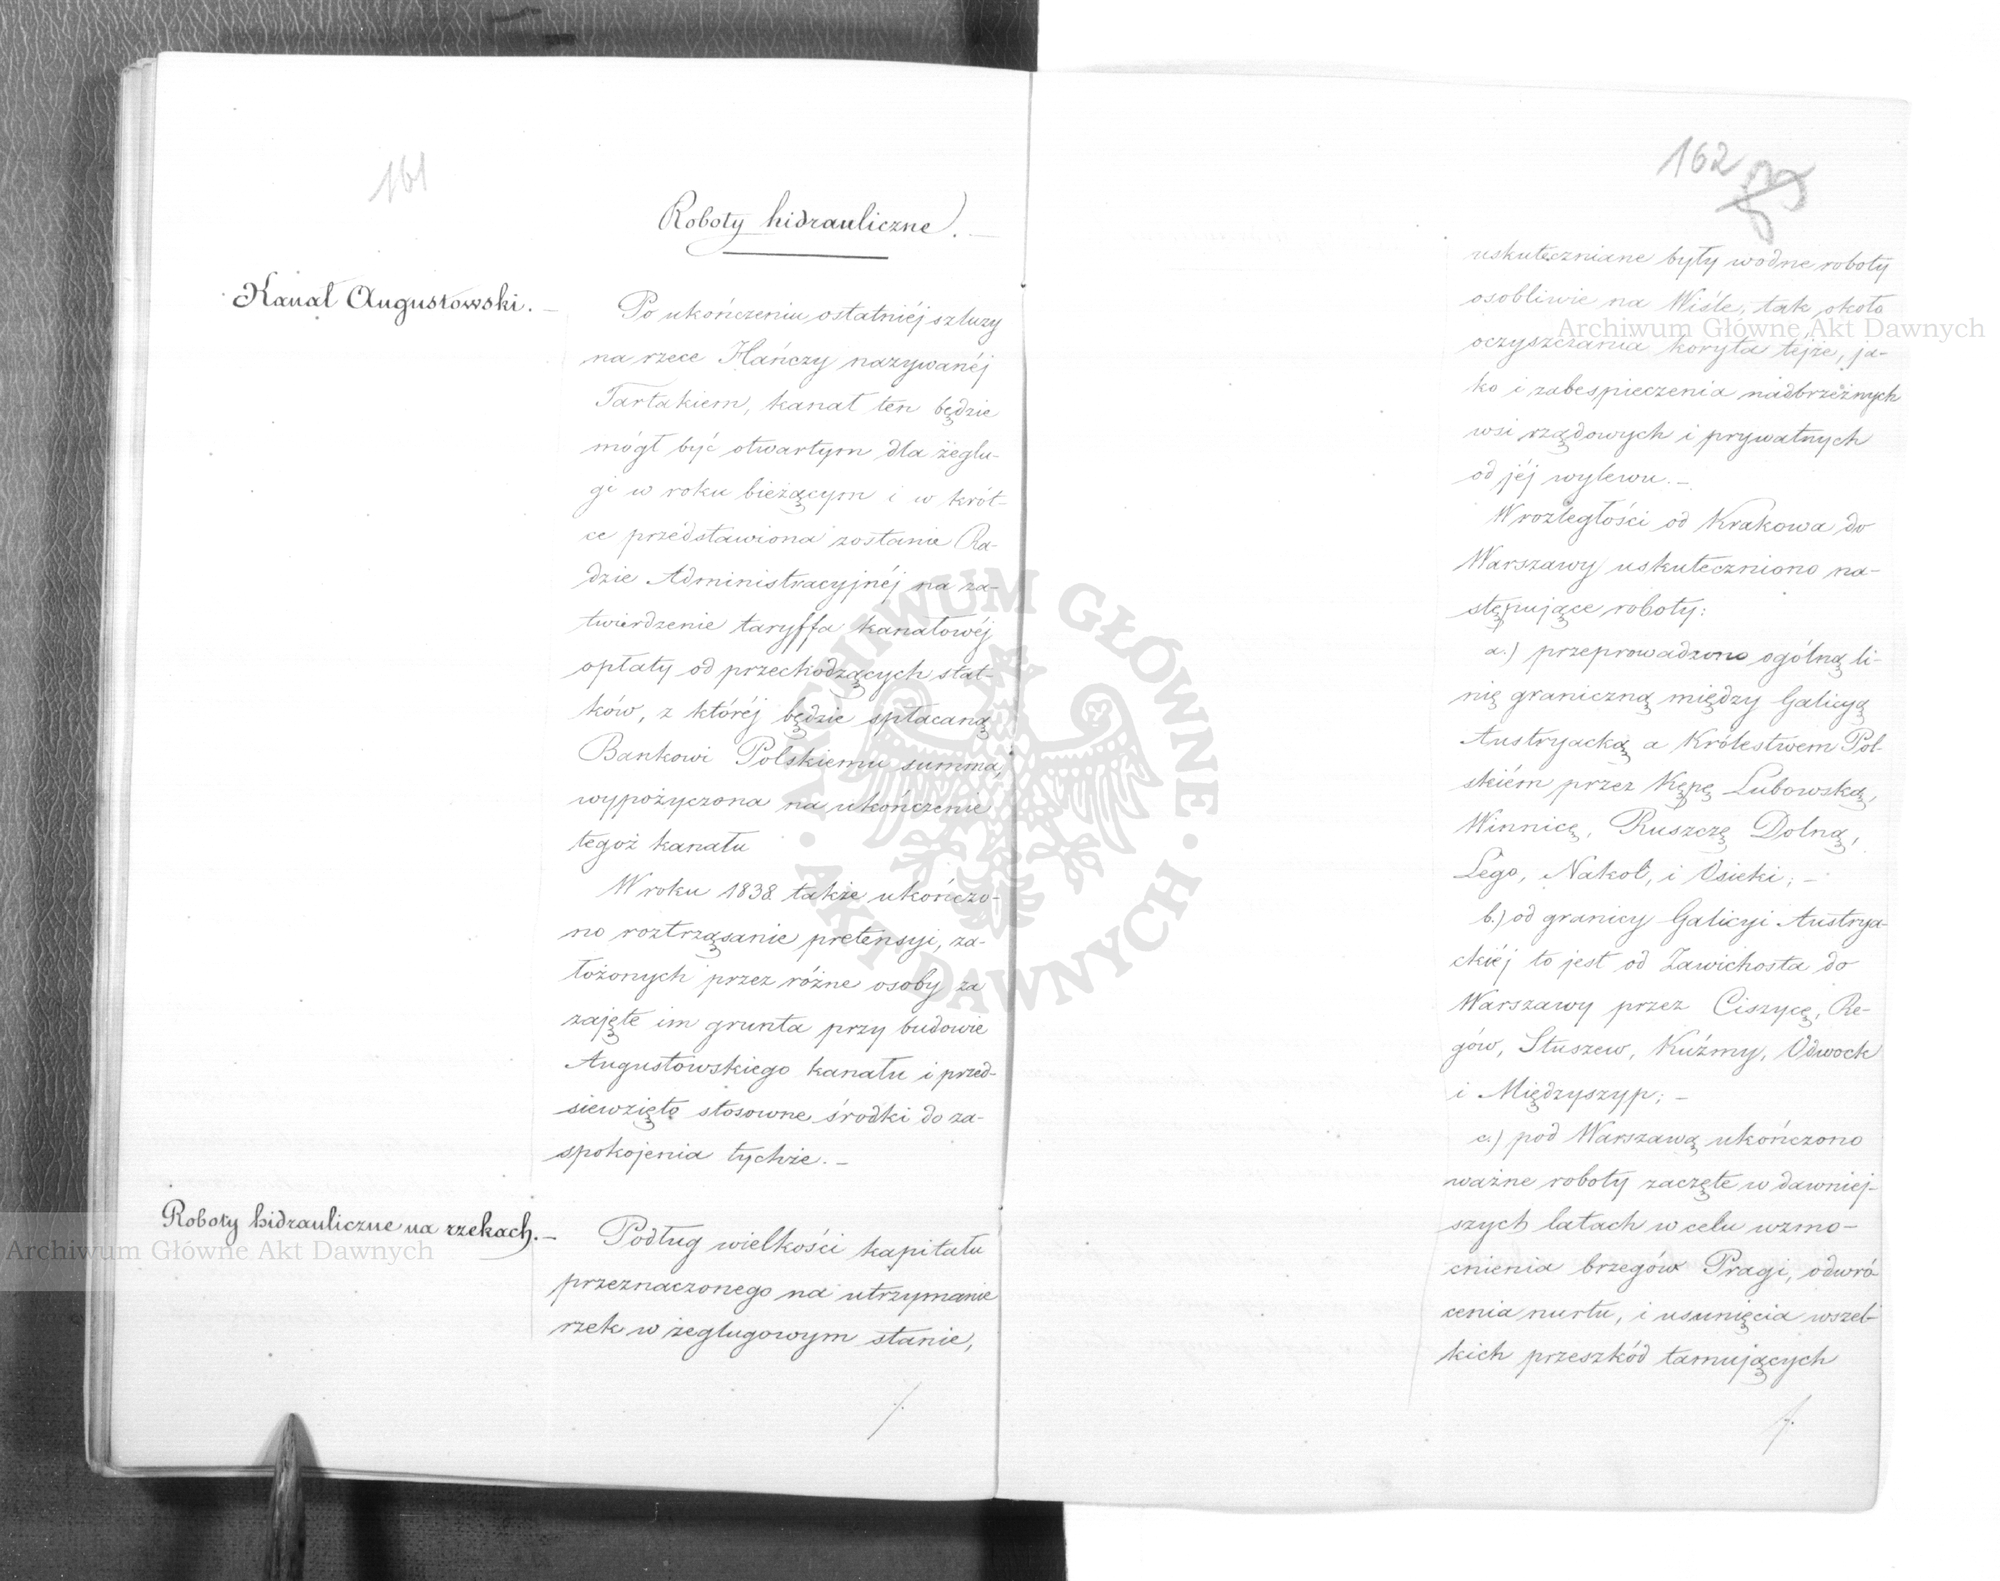 161
Roboty hidrauliczne. —
Kanał Augustowski. —
Po ukończeniu ostatniéj szluzy
na rzece Hańczy nazywanéj
Tartakiem, kanał ten będzie
mógł być otwartym dla żeglu-
gi w roku bieżącym i w krót-
ce przedstawiona zostanie Ra-
dzie Administracyjnéj na za-
twierdzenie taryffa kanałowéj
opłaty od przechodzących stat-
ków, z któréj będzie spłacaną
Bankowi Polskiemu summa,
wypożyczona na ukończenie
tegoż kanału
W roku 1838 także ukończo-
no roztrząsanie pretensyi, za-
łożonych przez różne osoby za
zajęte im grunta przy budowie
Augustowskiego kanału i przed-
siewzięto stosowne środki do za-
spokojenia tychże. —
Roboty hidrauliczne na rzekach. —
Podług wielkości kapitału
przeznaczonego na utrzymanie
rzek w żeglugowym stanie,
162
uskuteczniane były wodne roboty
osobliwie na Wiśle, tak około
oczyszczania koryta tejże, ja-
ko i zabespieczenia nadbrzeżnych
wsi rządowych i prywatnych
od jéj wylewu. —
W rozległości od Krakowa do
Warszawy uskuteczniono na-
stępujące roboty:
a.) przeprowadzono ogólną li-
nię graniczną między Galicyą
Austryacką a Królestwem Pol-
skiém przez Kępę Lubowską,
Winnicę, Ruszczę Dolną,
Łęgo, Nakoł, i Osieki; —
b.) od granicy Galicyi Austrya-
ckiéj to jest od Zawichosta do
Warszawy przez Ciszycę, Re-
gów, Stuszew, Kuźmy, Odwock
i Międzyszyp; —
c.) pod Warszawą ukończono
ważne roboty zaczęte w dawniej-
szych latach w celu wzmo-
cnienia brzegów Pragi, odwró-
cenia nurtu, i usunięcia wszel-
kich przeszkód tamujących
Archiwum Główne Akt Dawnych
Archiwum Główne Akt Dawnych
ARCHIWUM GŁÓWNE · AKT DAWNYCH ·